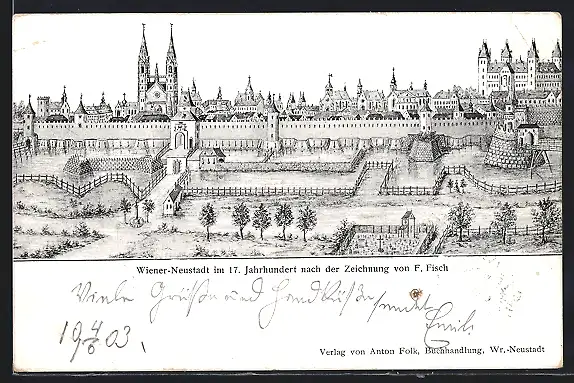 Wiener-Neustadt im 17. Jahrhundert nach der Zeichnung von F. Fisch
Viele Grüße und Handküße sendet
Emil
19 4/6 03.
Verlag von Anton Folk, Buchhandlung, Wr.-Neustadt